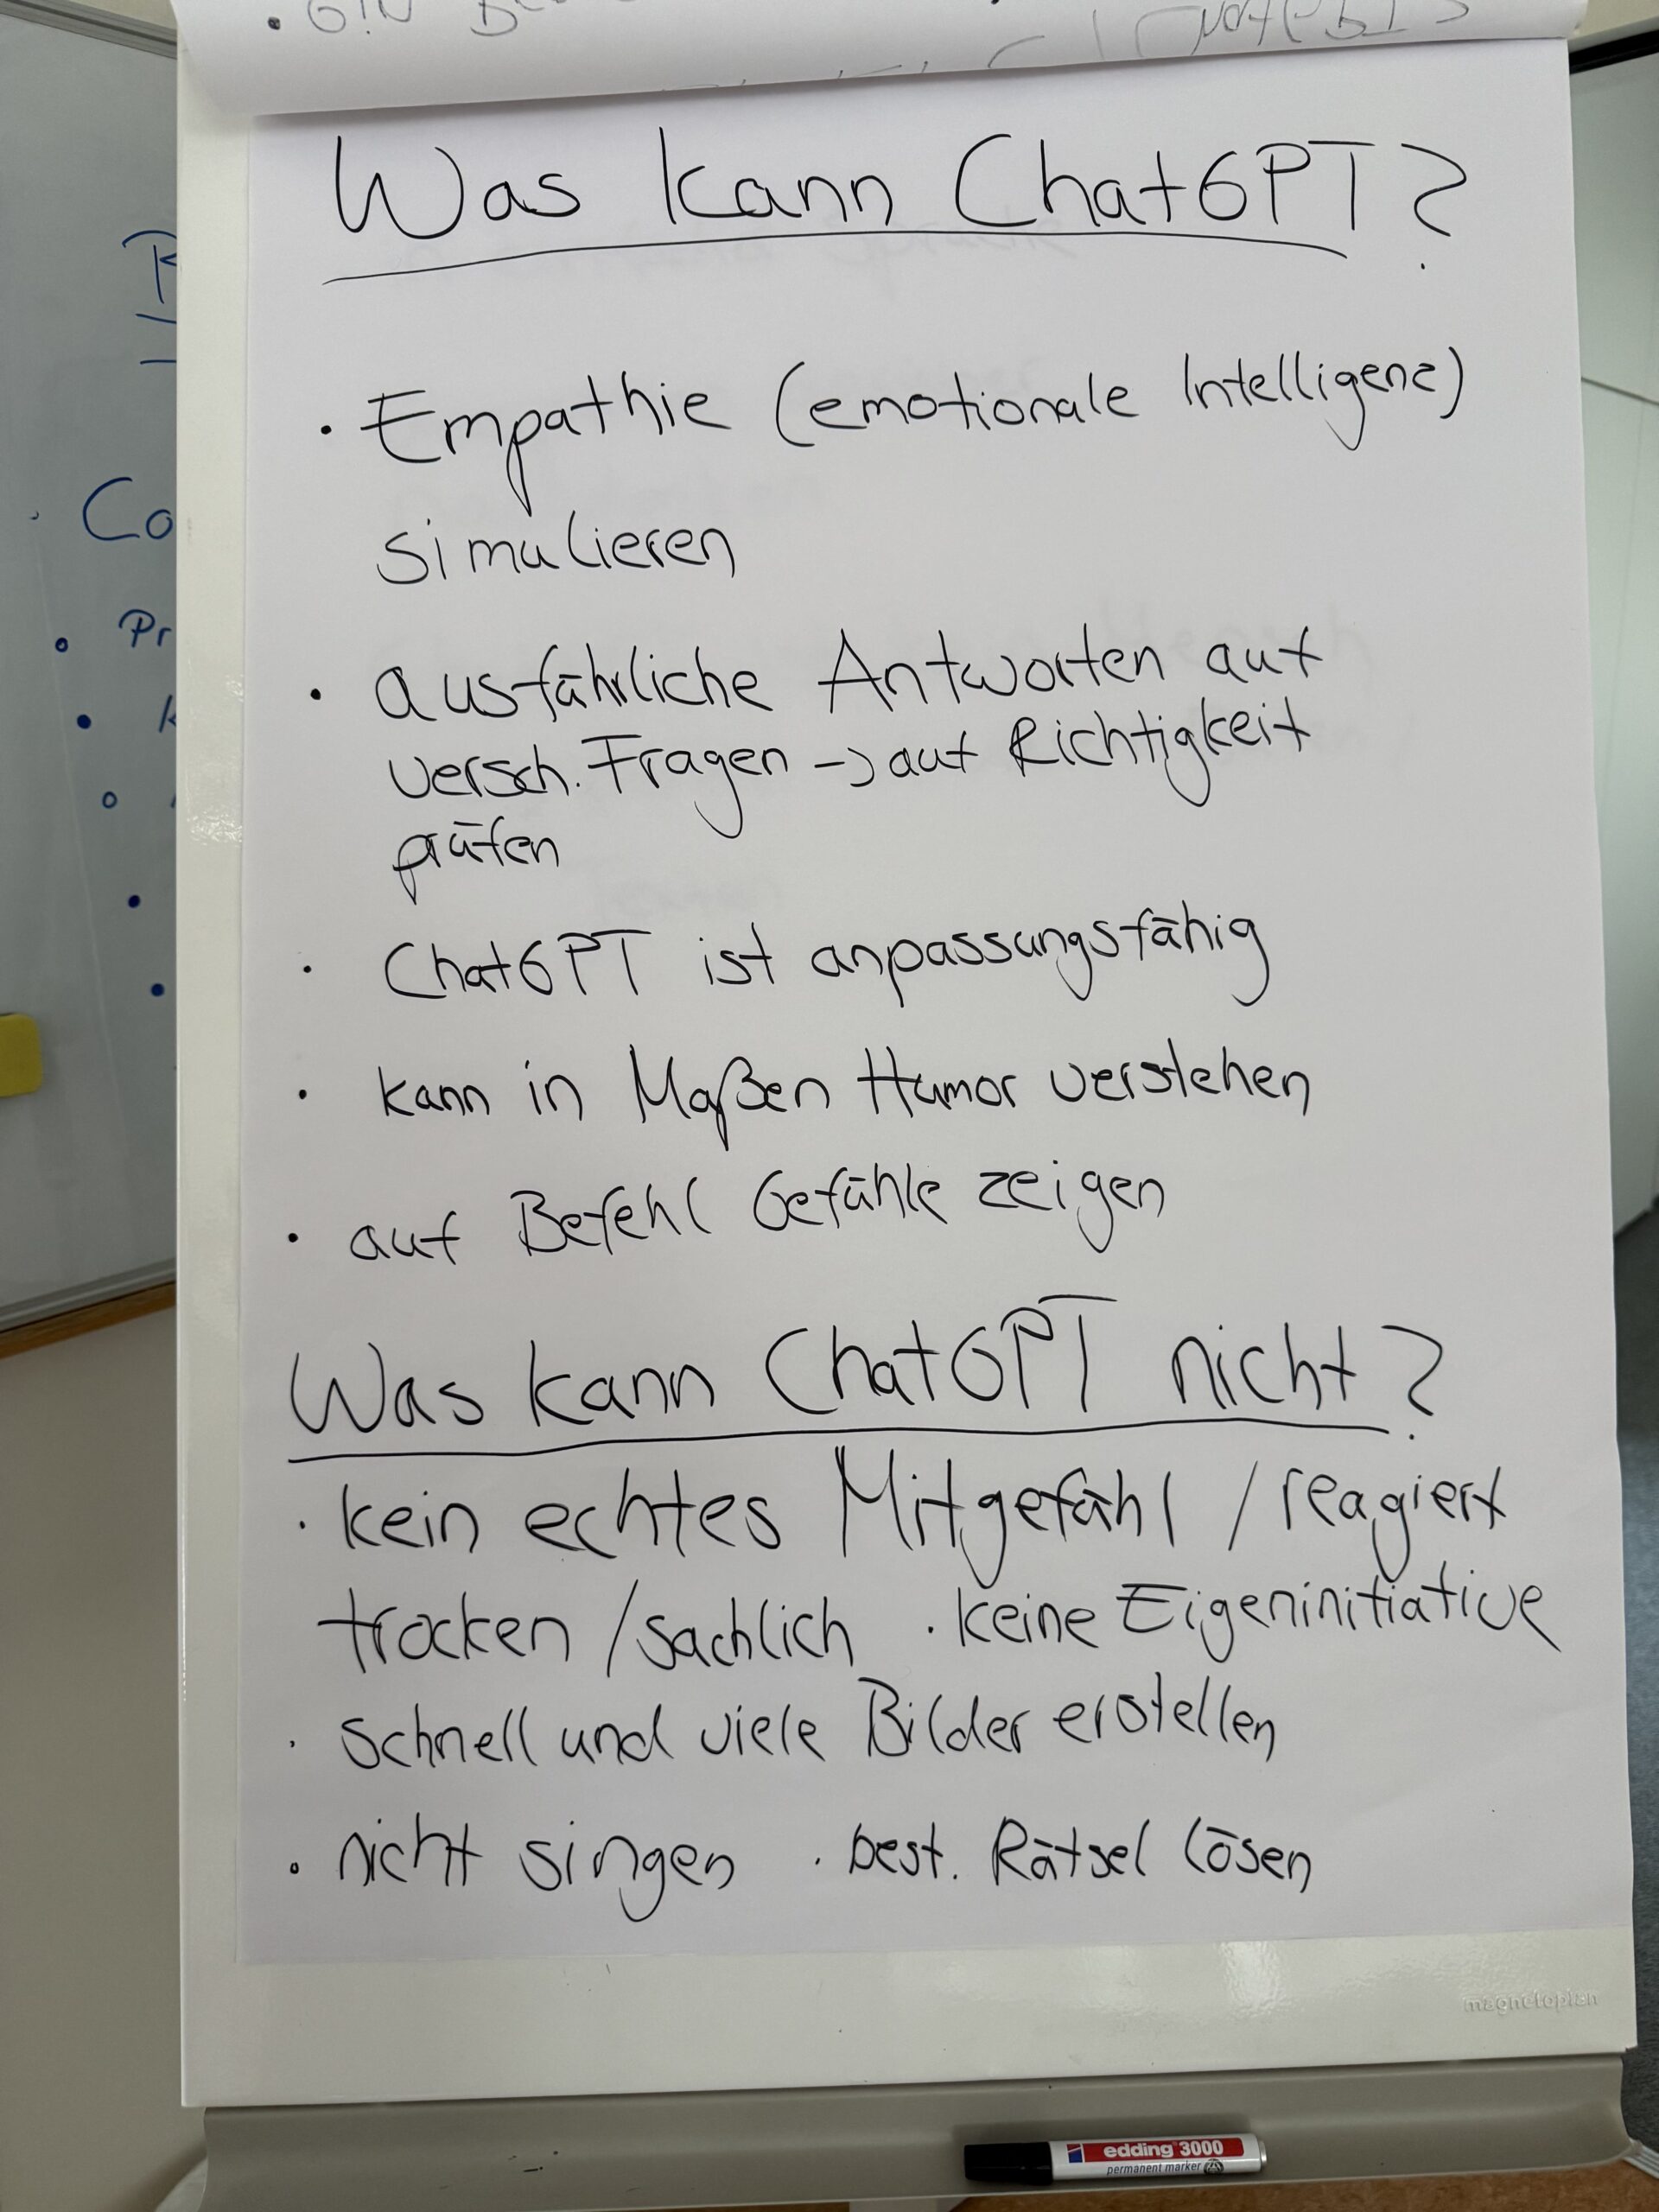 Was kann ChatGPT?
• Empathie (emotionale Intelligenz)
simulieren
• ausführliche Antworten auf
versch. Fragen -> auf Richtigkeit
prüfen
• ChatGPT ist anpassungsfähig
• kann in Maßen Humor verstehen
• auf Befehl Gefühle zeigen
Was kann ChatGPT nicht?
• kein echtes Mitgefühl / reagiert
trocken / sachlich • keine Eigeninitiative
• schnell und viele Bilder erstellen
• nicht singen • best. Rätsel lösen
magnetoplan
edding 3000
permanent marker
Co
• Pr